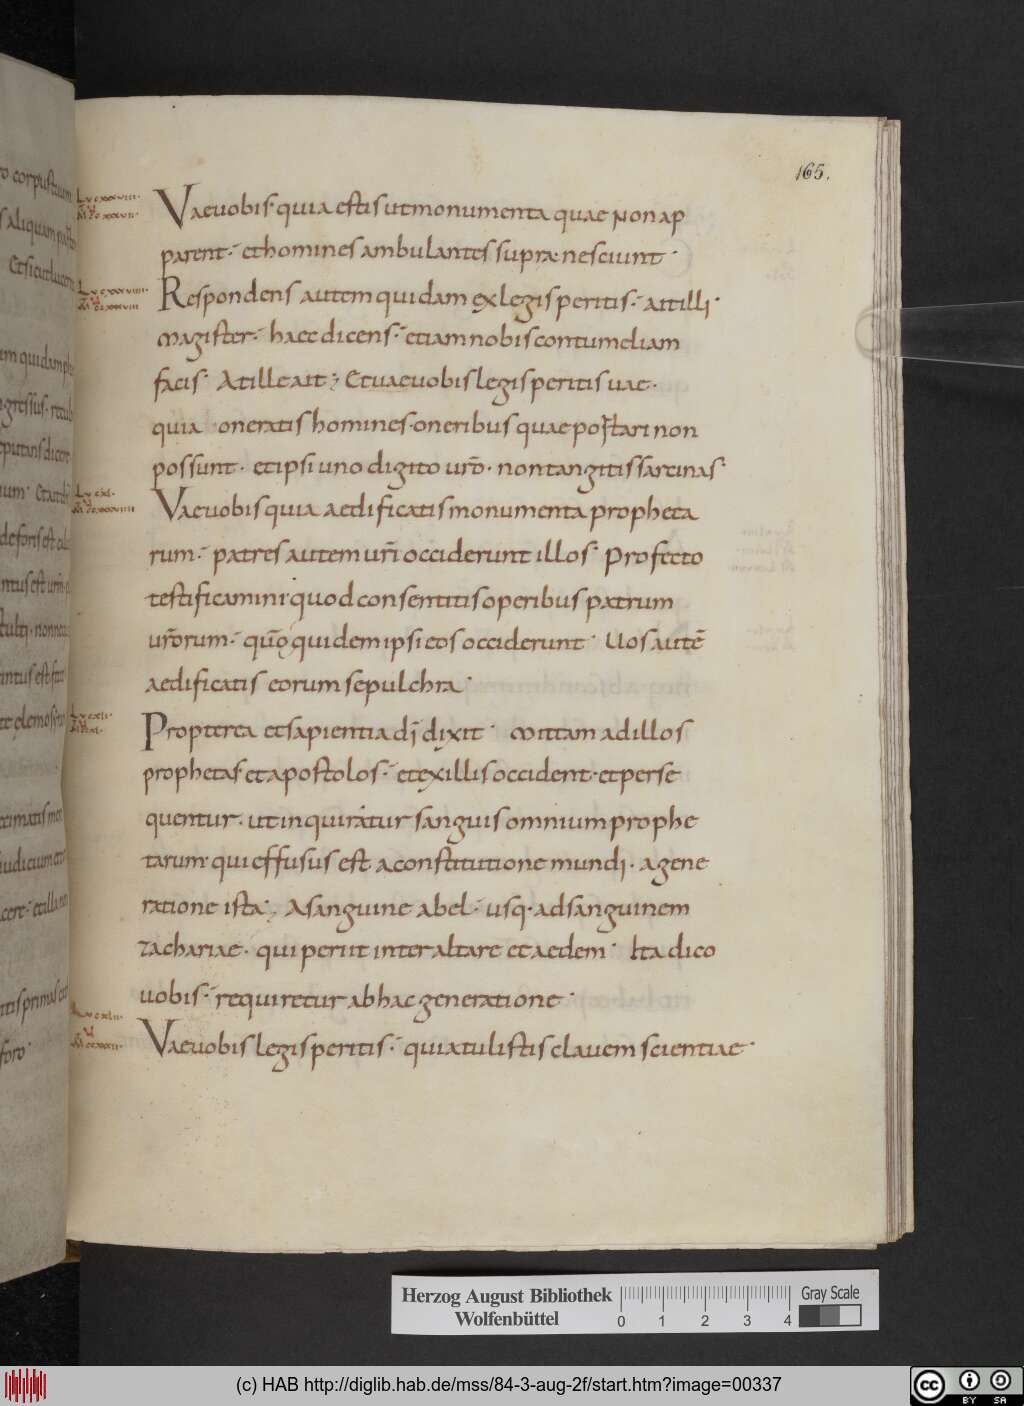 165.
Vaeuobis quia estis utmonumenta quae non ap
parent. ethomines ambulantes supra nesciunt.
Respondens autem quidam ex legisperitis. aitilli.
magister. haec dicens. etiam nobis contumeliam
facis. Atille ait; Et uaeuobis legisperitis uae.
quia oneratis homines. oneribus quae portari non
possunt. et ipsi uno digito uro̅. non tangitis sarcinas.
Vaeuobis quia aedificatis monumenta propheta
rum. patres autem uri̅ occiderunt illos. Profecto
testificamini quod consentitis operibus patrum
uro̅rum. quo̅ quidem ipsi eos occiderunt. Uos aute̅
aedificatis eorum sepulchra.
Propterea et sapientia di̅ dixit. mittam ad illos
prophetas et apostolos. et ex illis occident. et perse
quentur. ut inquiratur sanguis omnium prophe
tarum qui effusus est a constitutione mundi. a gene
ratione ista. A sanguine abel. usq. ad sanguinem
zachariae. qui periit inter altare et aedem. Ita dico
uobis. requiretur ab hac generatione.
Vaeuobis legisperitis. quia tulistis clauem scientiae.
Herzog August Bibliothek
Wolfenbüttel
0 1 2 3 4
Gray Scale
(c) HAB http://diglib.hab.de/mss/84-3-aug-2f/start.htm?image=00337
cc BY SA